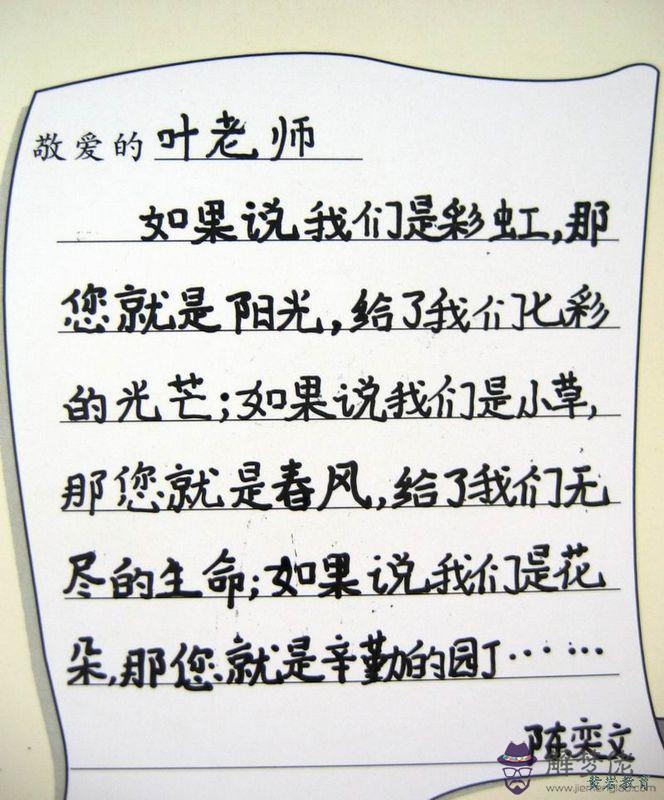 敬爱的 叶老师
如果说我们是彩虹,那
您就是阳光,给了我们七彩
的光芒;如果说我们是小草,
那您就是春风,给了我们无
尽的生命;如果说我们是花
朵,那您就是辛勤的园丁……
陈奕文
解梦佬
紫岩教育